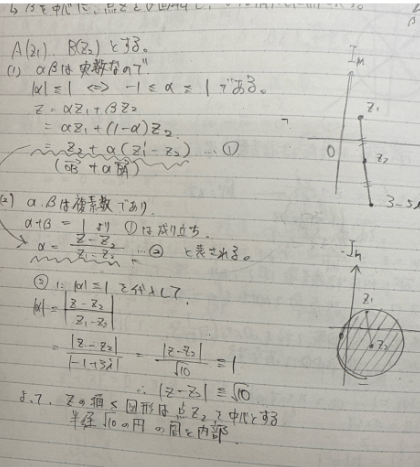 A(z₁), B(z₂) とする。
(1) α,βは実数なので
|α| ≦ 1 ⇔ -1 ≦ α ≦ 1 である。
z = αz₁ + βz₂
= αz₁ + (1-α)z₂
= z₂ + α(z₁-z₂) … ①
Im
z₁
0
z₂
3-5i
(2) α,βは複素数であり、
α+β = 1 より ①は成り立ち、
α = z-z₂/z₁-z₂ … ② と表される。
②に |α| ≦ 1 を代入して、
|α| = |z-z₂/z₁-z₂|
= |z-z₂|/|-1+3i| = |z-z₂|/√10 ≦ 1
∴ |z-z₂| ≦ √10
よって、zの描く図形は点z₂を中心とする
半径√10の円の周と内部
Im
z₁
z₂